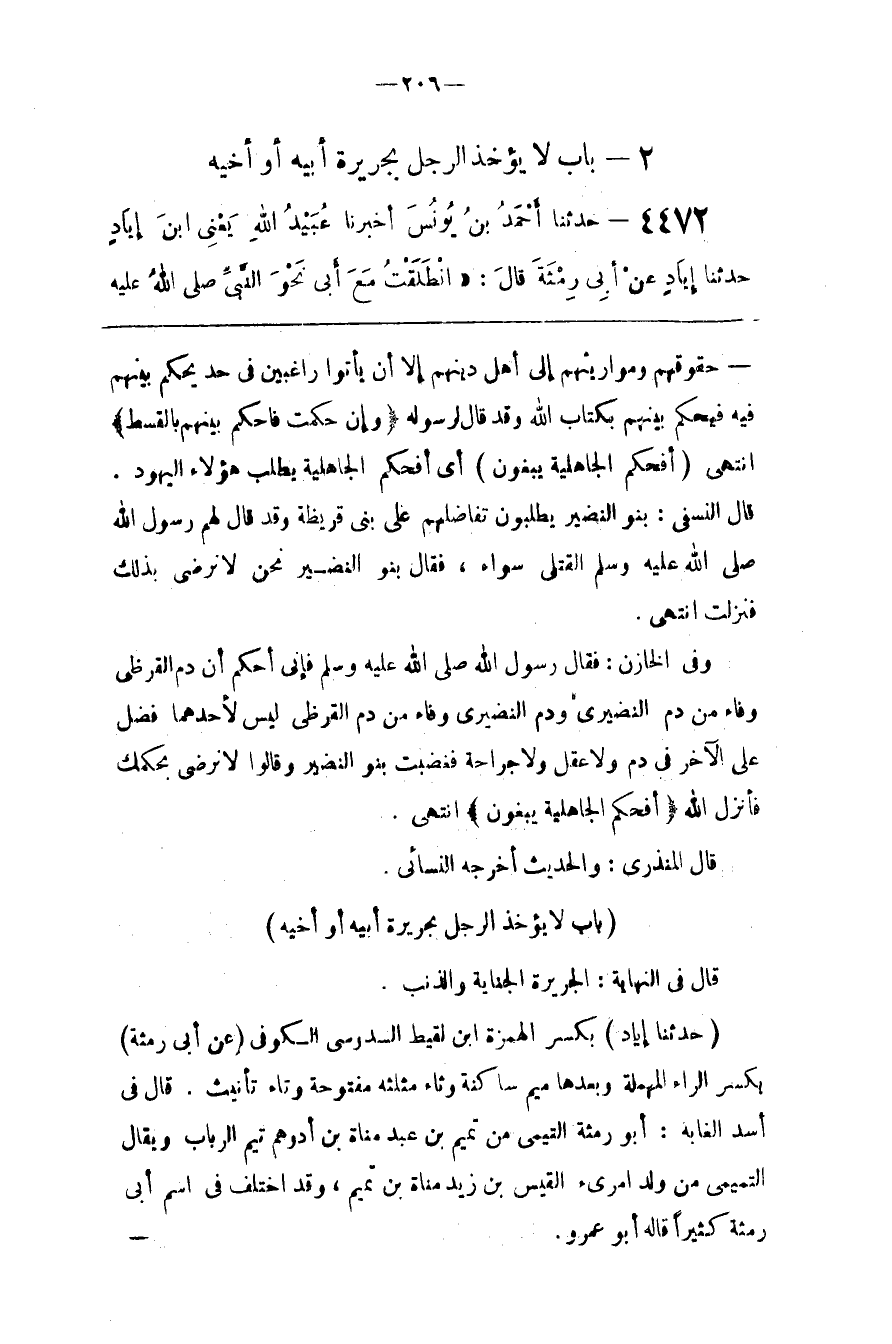 —٢٠٦—
٢ — باب لا يؤخذ الرجل بجريرة أبيه أو أخيه
٤٤٧٢ — حدثنا أَحْمَدُ بنُ يُونُسَ أخبرنا عُبَيْدُ اللهِ يَعْنِى ابنَ إِيَادٍ
حدثنا إِيَادٍ عنْ أَبِى رِمْثَةَ قالَ : « انْطَلَقْتُ مَعَ أَبى نَحْوَ النَّبىِّ صلى اللهُ عليه
— حقوقهم ومواريثهم إلى أهل دينهم إلا أن يأتوا راغبين فى حد يحكم بينهم
فيه فيحكم بينهم بكتاب الله وقد قال لرسوله ﴿ وإن حكمت فاحكم بينهم بالقسط ﴾
انتهى ( أفحكم الجاهلية يبغون ) أى أفحكم الجاهلية يطلب هؤلاء اليهود .
قال النسفى : بنو النضير يطلبون تفاضلهم على بنى قريظة وقد قال لهم رسول الله
صلى الله عليه وسلم القتلى سواء ، فقال بنو النضـير نحن لا نرضى بذلك
فنزلت انتهى .
وفى الخازن : فقال رسول الله صلى الله عليه وسلم فإنى أحكم أن دم القرظى
وفاء من دم النضيرى ودم النضيرى وفاء من دم القرظى ليس لأحدهما فضل
على الآخر فى دم ولا عقل ولا جراحة فغضبت بنو النضير وقالوا لا نرضى بحكمك
فأنزل الله ﴿ أفحكم الجاهلية يبغون ﴾ انتهى .
قال المنذرى : والحديث أخرجه النسائى .
( باب لا يؤخذ الرجل بجريرة أبيه أو أخيه )
قال فى النهاية : الجريرة الجناية والذنب .
( حدثنا إياد ) بكسر الهمزة ابن لقيط السدوسى الـكوفى ( عن أبى رمثة )
بكسر الراء المهملة وبعدها ميم ساكنة وثاء مثلثه مفتوحة وتاء تأنيث . قال فى
أسد الغابة : أبو رمثة التيمى من تميم بن عبد مناة بن أدوهم تيم الرباب ويقال
التميمى من ولد امرىء القيس بن زيد مناة بن تميم ، وقد اختلف فى اسم أبى
رمثة كثيراً قاله أبو عمرو . —